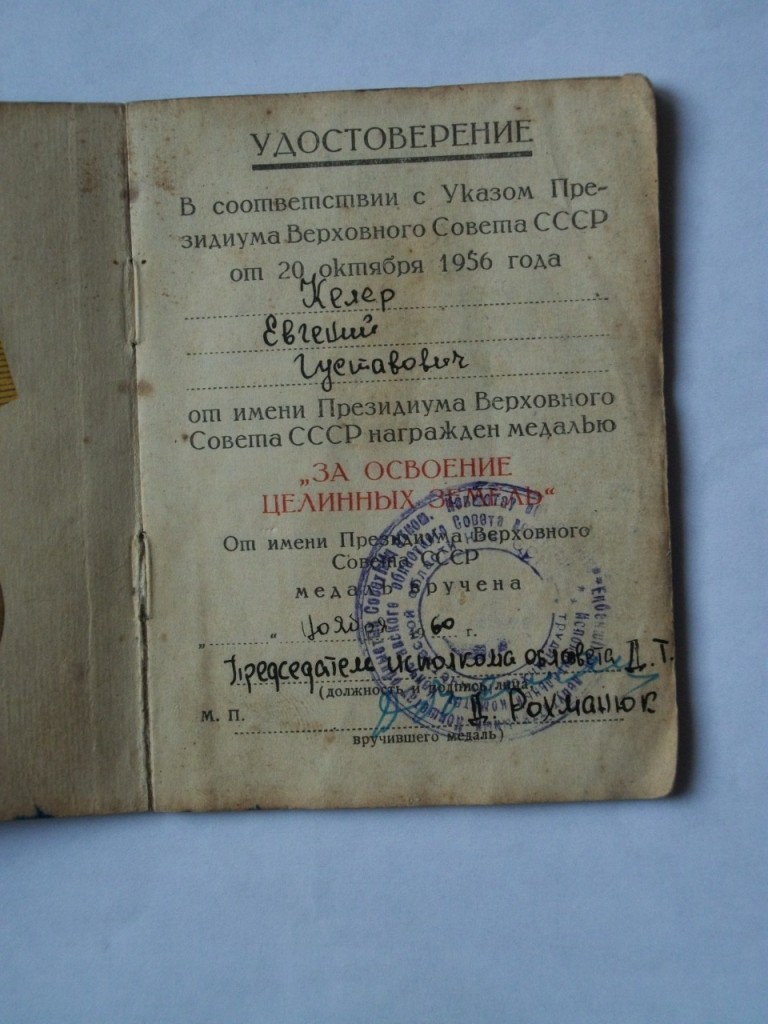 УДОСТОВЕРЕНИЕ
В соответствии с Указом Пре-
зидиума Верховного Совета СССР
от 20 октября 1956 года
Келер
Евгений
Густавович
от имени Президиума Верховного
Совета СССР награжден медалью
„ЗА ОСВОЕНИЕ
ЦЕЛИННЫХ ЗЕМЕЛЬ“
От имени Президиума Верховного
Совета СССР
медаль вручена
„ “ ноября 1960 г.
Председатель исполкома облсовета Д. Т.
(должность и подпись лица,
М. П. Д. Рахманюк
вручившего медаль)